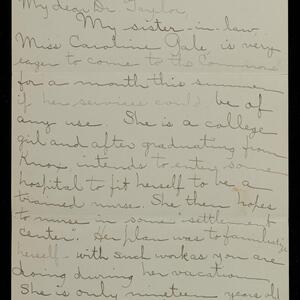 My dear Dr Taylor,
My sister-in-law
Miss Caroline Gale is very
eager to come to the Commons
for a month this summer
if her services could be of
any use. She is a college
girl and after graduating from
Knox intends to enter some
hospital to fit herself to be a
trained nurse. She then hopes
to nurse in some "settlement
center". Her plan was to familiarize
herself with such work as you are
doing during her vacation
She is only nineteen years old